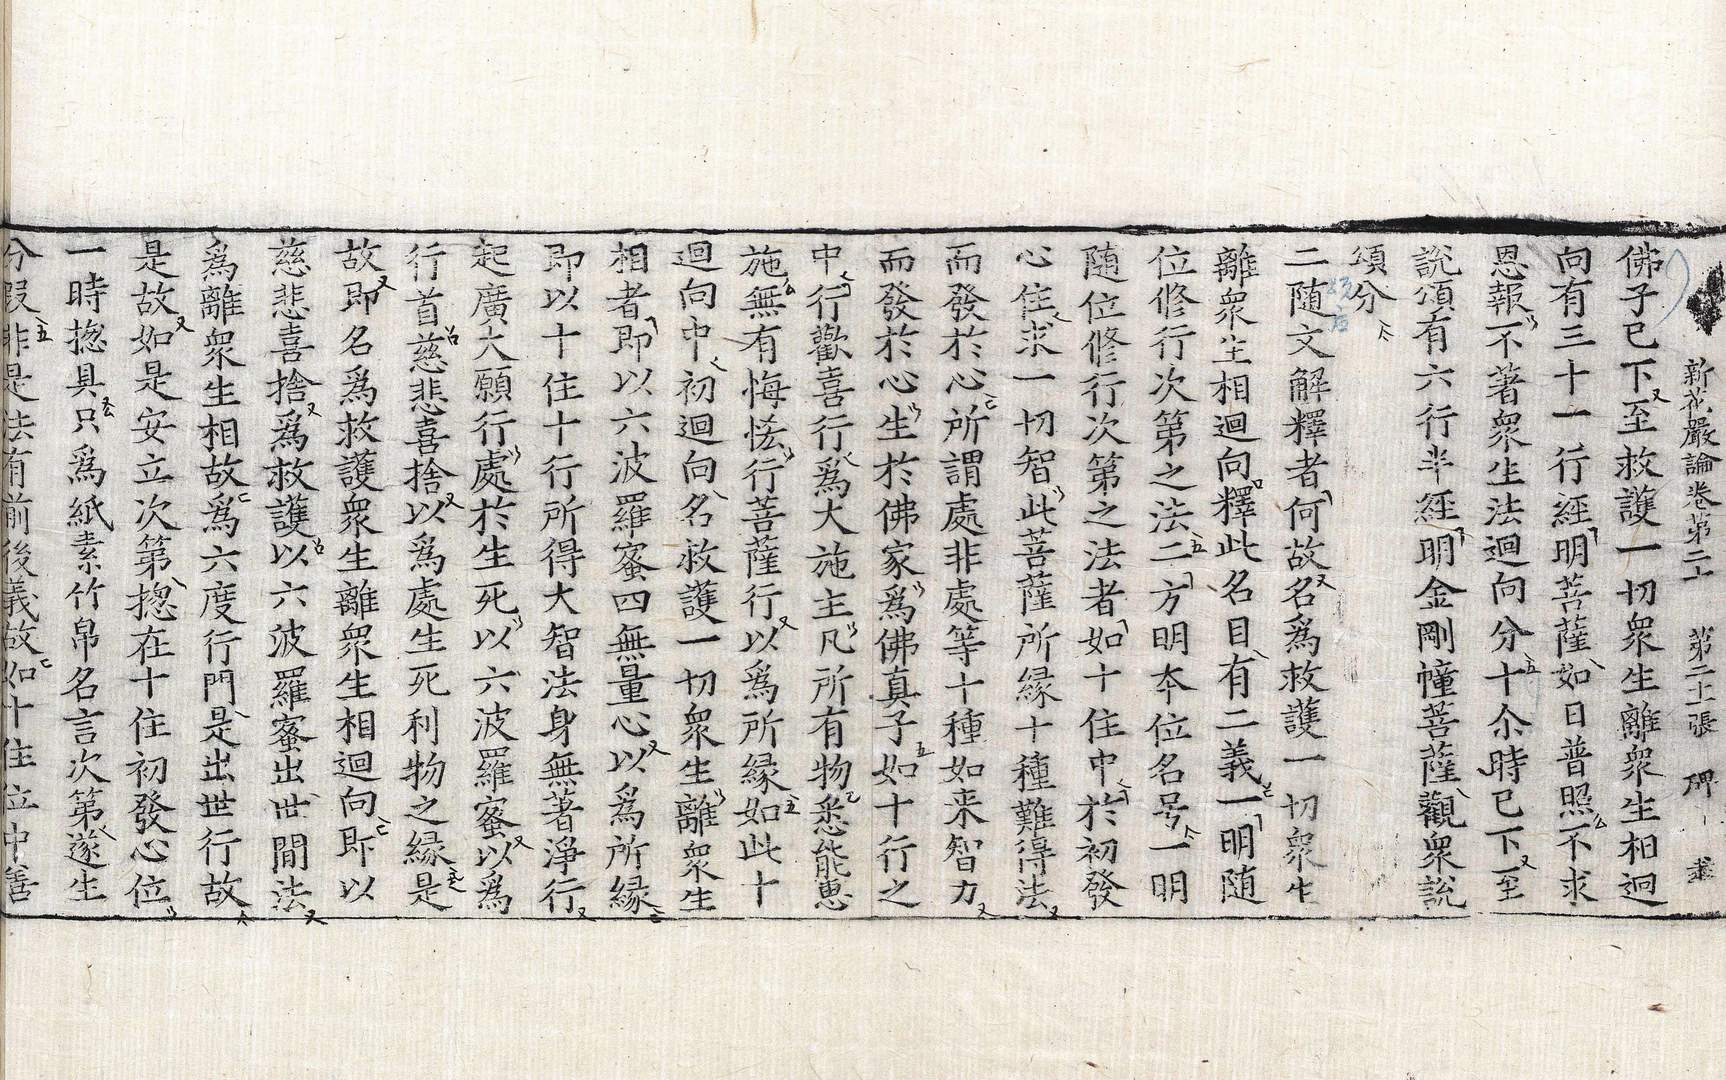 新花嚴論卷第二十　第二十張　碑
佛子已下至救護一切衆生離衆生相迴
向有三十一行經明菩薩如日普照不求
恩報不著衆生法迴向分十尒時已下至
說頌有六行半經明金剛幢菩薩觀衆說
頌分
二随文解釋者何故名爲救護一切衆生
離衆生相迴向釋此名目有二義一明随
位修行次第之法二方明本位名号一明
随位修行次第之法者如十住中於初發
心住求一切智此菩薩所緣十種難得法
而發於心所謂處非處等十種如来智力
而發於心生於佛家爲佛真子如十行之
中行歡喜行爲大施主凡所有物悉能惠
施無有悔恡行菩薩行以爲所緣如此十
迴向中初迴向名救護一切衆生離衆生
相者即以六波羅蜜四無量心以爲所緣
即以十住十行所得大智法身無著淨行
起廣大願行處於生死以六波羅蜜以爲
行首慈悲喜捨以爲處生死利物之緣是
故即名爲救護衆生離衆生相迴向即以
慈悲喜捨爲救護以六波羅蜜出世間法
爲離衆生相故爲六度行門是出世行故
是故如是安立次第揔在十住初發心位
一時揔具只爲紙素竹帛名言次第遂生
分叚非是法有前後義故如十住位中善